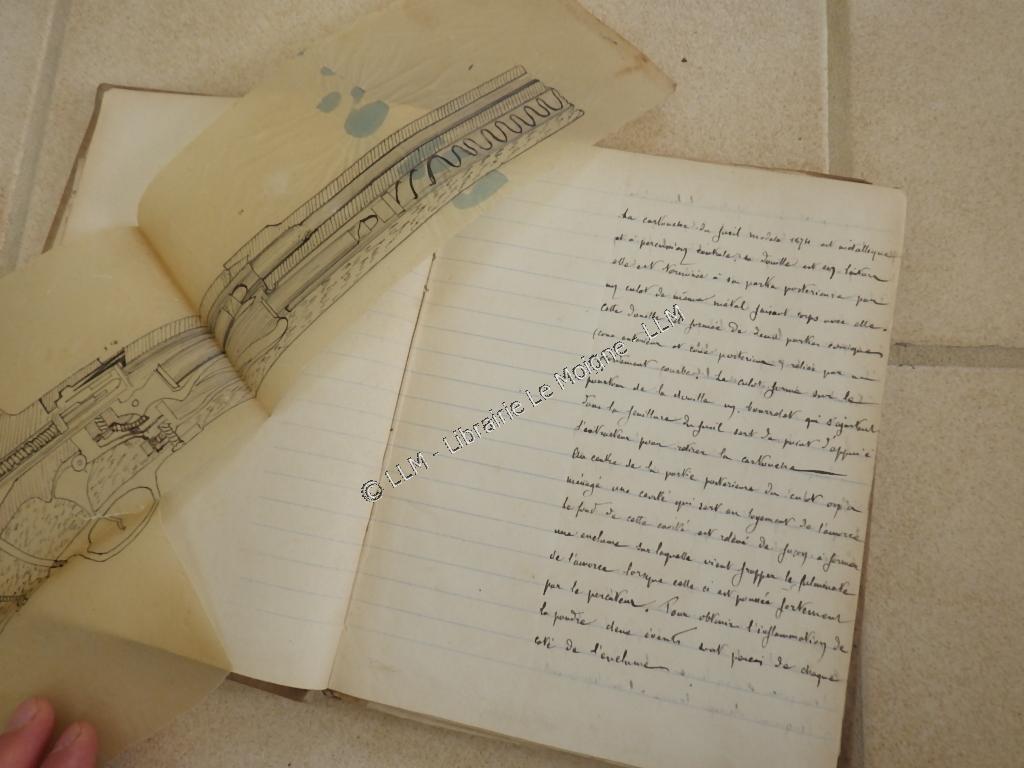 La cartouche du fusil modèle 1874 est métallique
et à percussion centrale, sa douille est en laiton
elle est terminée à sa partie posterieure par
un culot de même métal faisant corps avec elle.
Cette douille formée de deux parties coniques
(cône et cône posterieur) reliés par un
courbe. Le culot forme sur la
partie de la douille un bourrelet qui s'ajustant
dans la feuillure du fusil sert de point d'appui à
l'extracteur pour retirer la cartouche
Au centre de la partie posterieure du culot on a
ménagé une cavité qui sert au logement de l'amorce
le fond de cette cavité est relevé de façon à former
une enclume sur laquelle vient frapper le fulminate
de l'amorce lorsque celle ci est poussée fortement
par le percuteur. Pour obtenir l'inflammation de
la poudre deux évents sont percés de chaque
coté de l'enclume
© LLM - Librairie Le Moigne - LLM